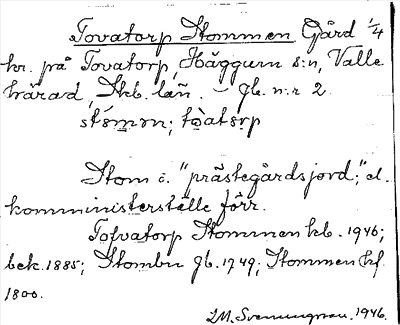 Tovatorp Stommen Gård 1/4
hr. på Tovatorp, Häggum s:n, Valle
härad, Skb. län. – Jb. n:r 2.
stómən; tòatɔrp
Stom i. "prästegårdsjord;" el.
komministerställe förr.
Tofvatorp Stommen kb. 1946;
bek. 1885; Stombu jb. 1749; Stommen kf
1800.
1946.